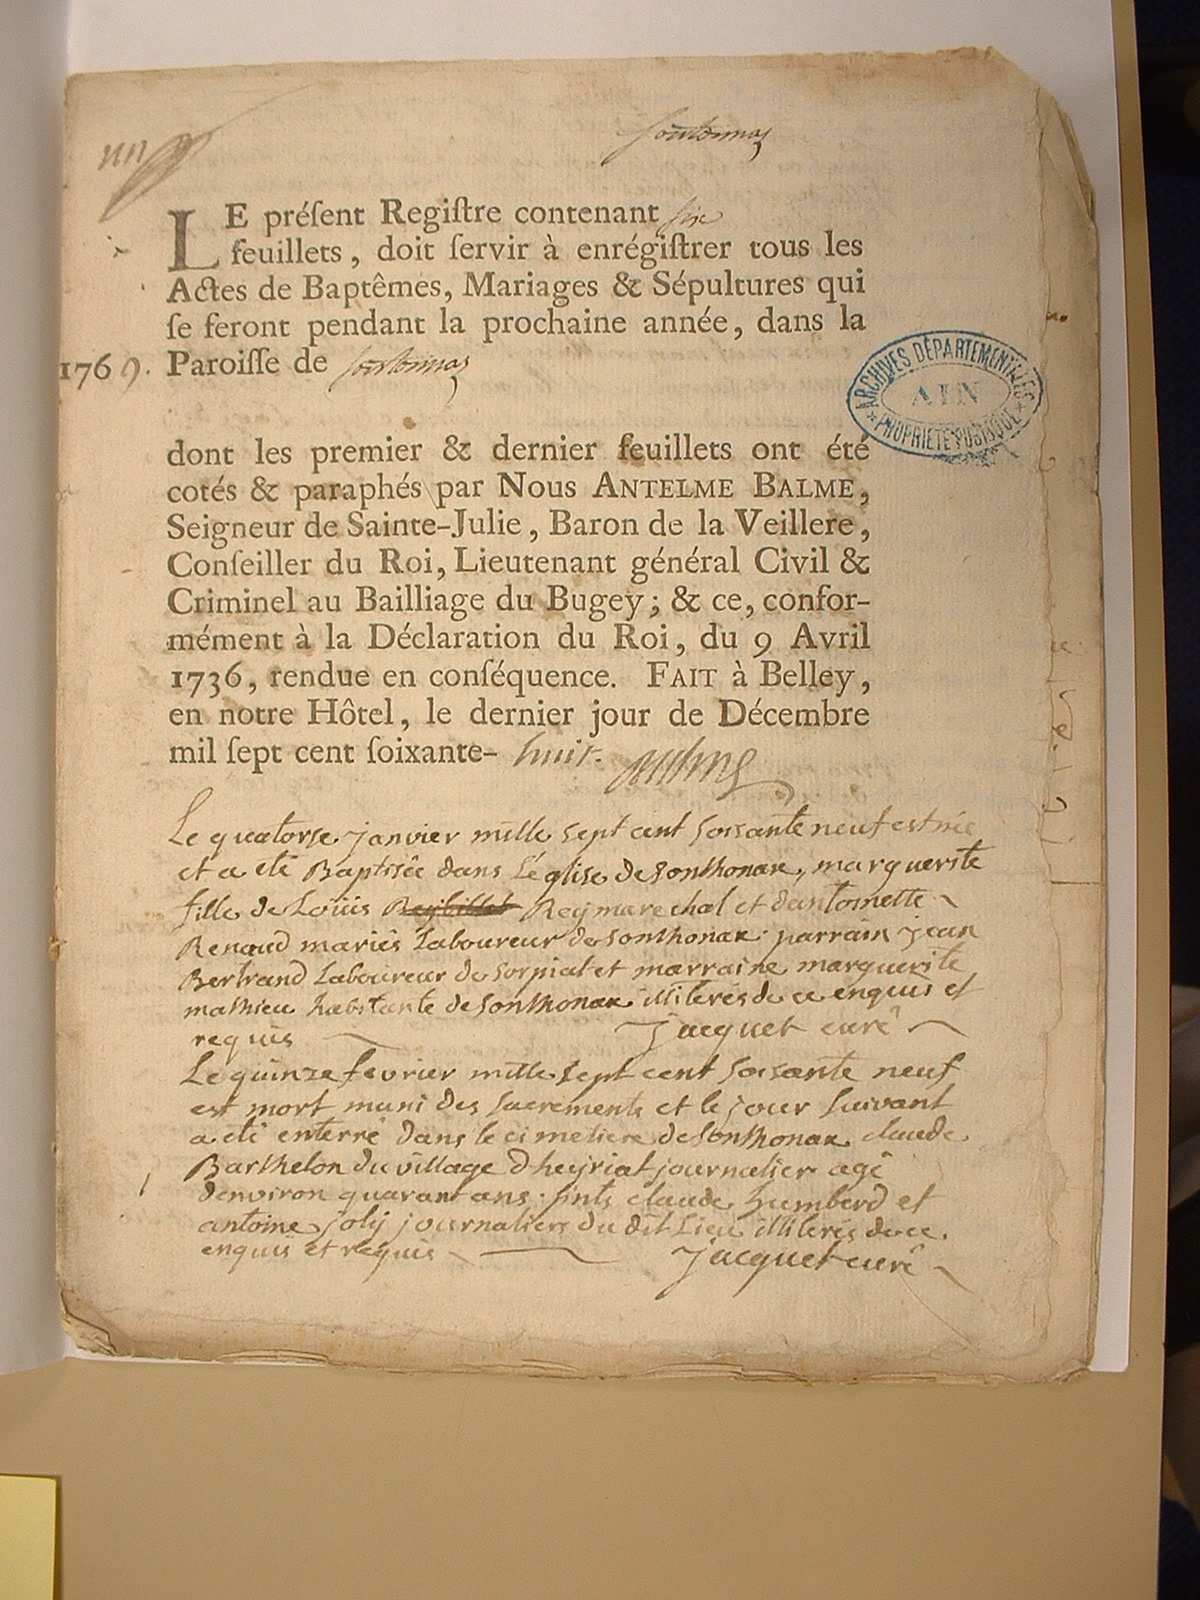 Sontonnas
LE préſent Regiſtre contenant ſix
feuillets, doit ſervir à enrégiſtrer tous les
Actes de Baptêmes, Mariages & Sépultures qui
ſe feront pendant la prochaine année, dans la
1769. Paroiſſe de Sontonnas
ARCHIVES DÉPARTEMENTALES
AIN
* PROPRIÉTÉ PUBLIQUE *
dont les premier & dernier feuillets ont été
cotés & paraphés par Nous ANTELME BALME,
Seigneur de Sainte-Julie, Baron de la Veillere,
Conſeiller du Roi, Lieutenant général Civil &
Criminel au Bailliage du Bugey; & ce, confor-
mément à la Déclaration du Roi, du 9 Avril
1736, rendue en conſéquence. FAIT à Belley,
en notre Hôtel, le dernier jour de Décembre
mil ſept cent ſoixante- huit.
Le quatorse janvier mille sept cent soisante neuf est née
et a eté Baptisée dans l'église de sonthonax, marguerite
fille de Loüis Reymarechal et dantoinette
Renaud mariés Laboureur de sonthonax. parrain jean
Bertrand Laboureur de sorpiat et marraine marguerite
mathieu habitante de sonthonax illiterés de ce enquis et
requis Jacquet curé
Le quinze fevrier mille sept cent soisante neuf
est mort muni des sacrements et le jour suivant
a eté enterré dans le cimetiere de sonthonax claude
Barthelon du village d'heyriat journalier agé
denviron quarant ans. pnts claude humberd et
antoine joly journaliers du dit Lieu illiterés de ce
enquis et requis Jacquet curé